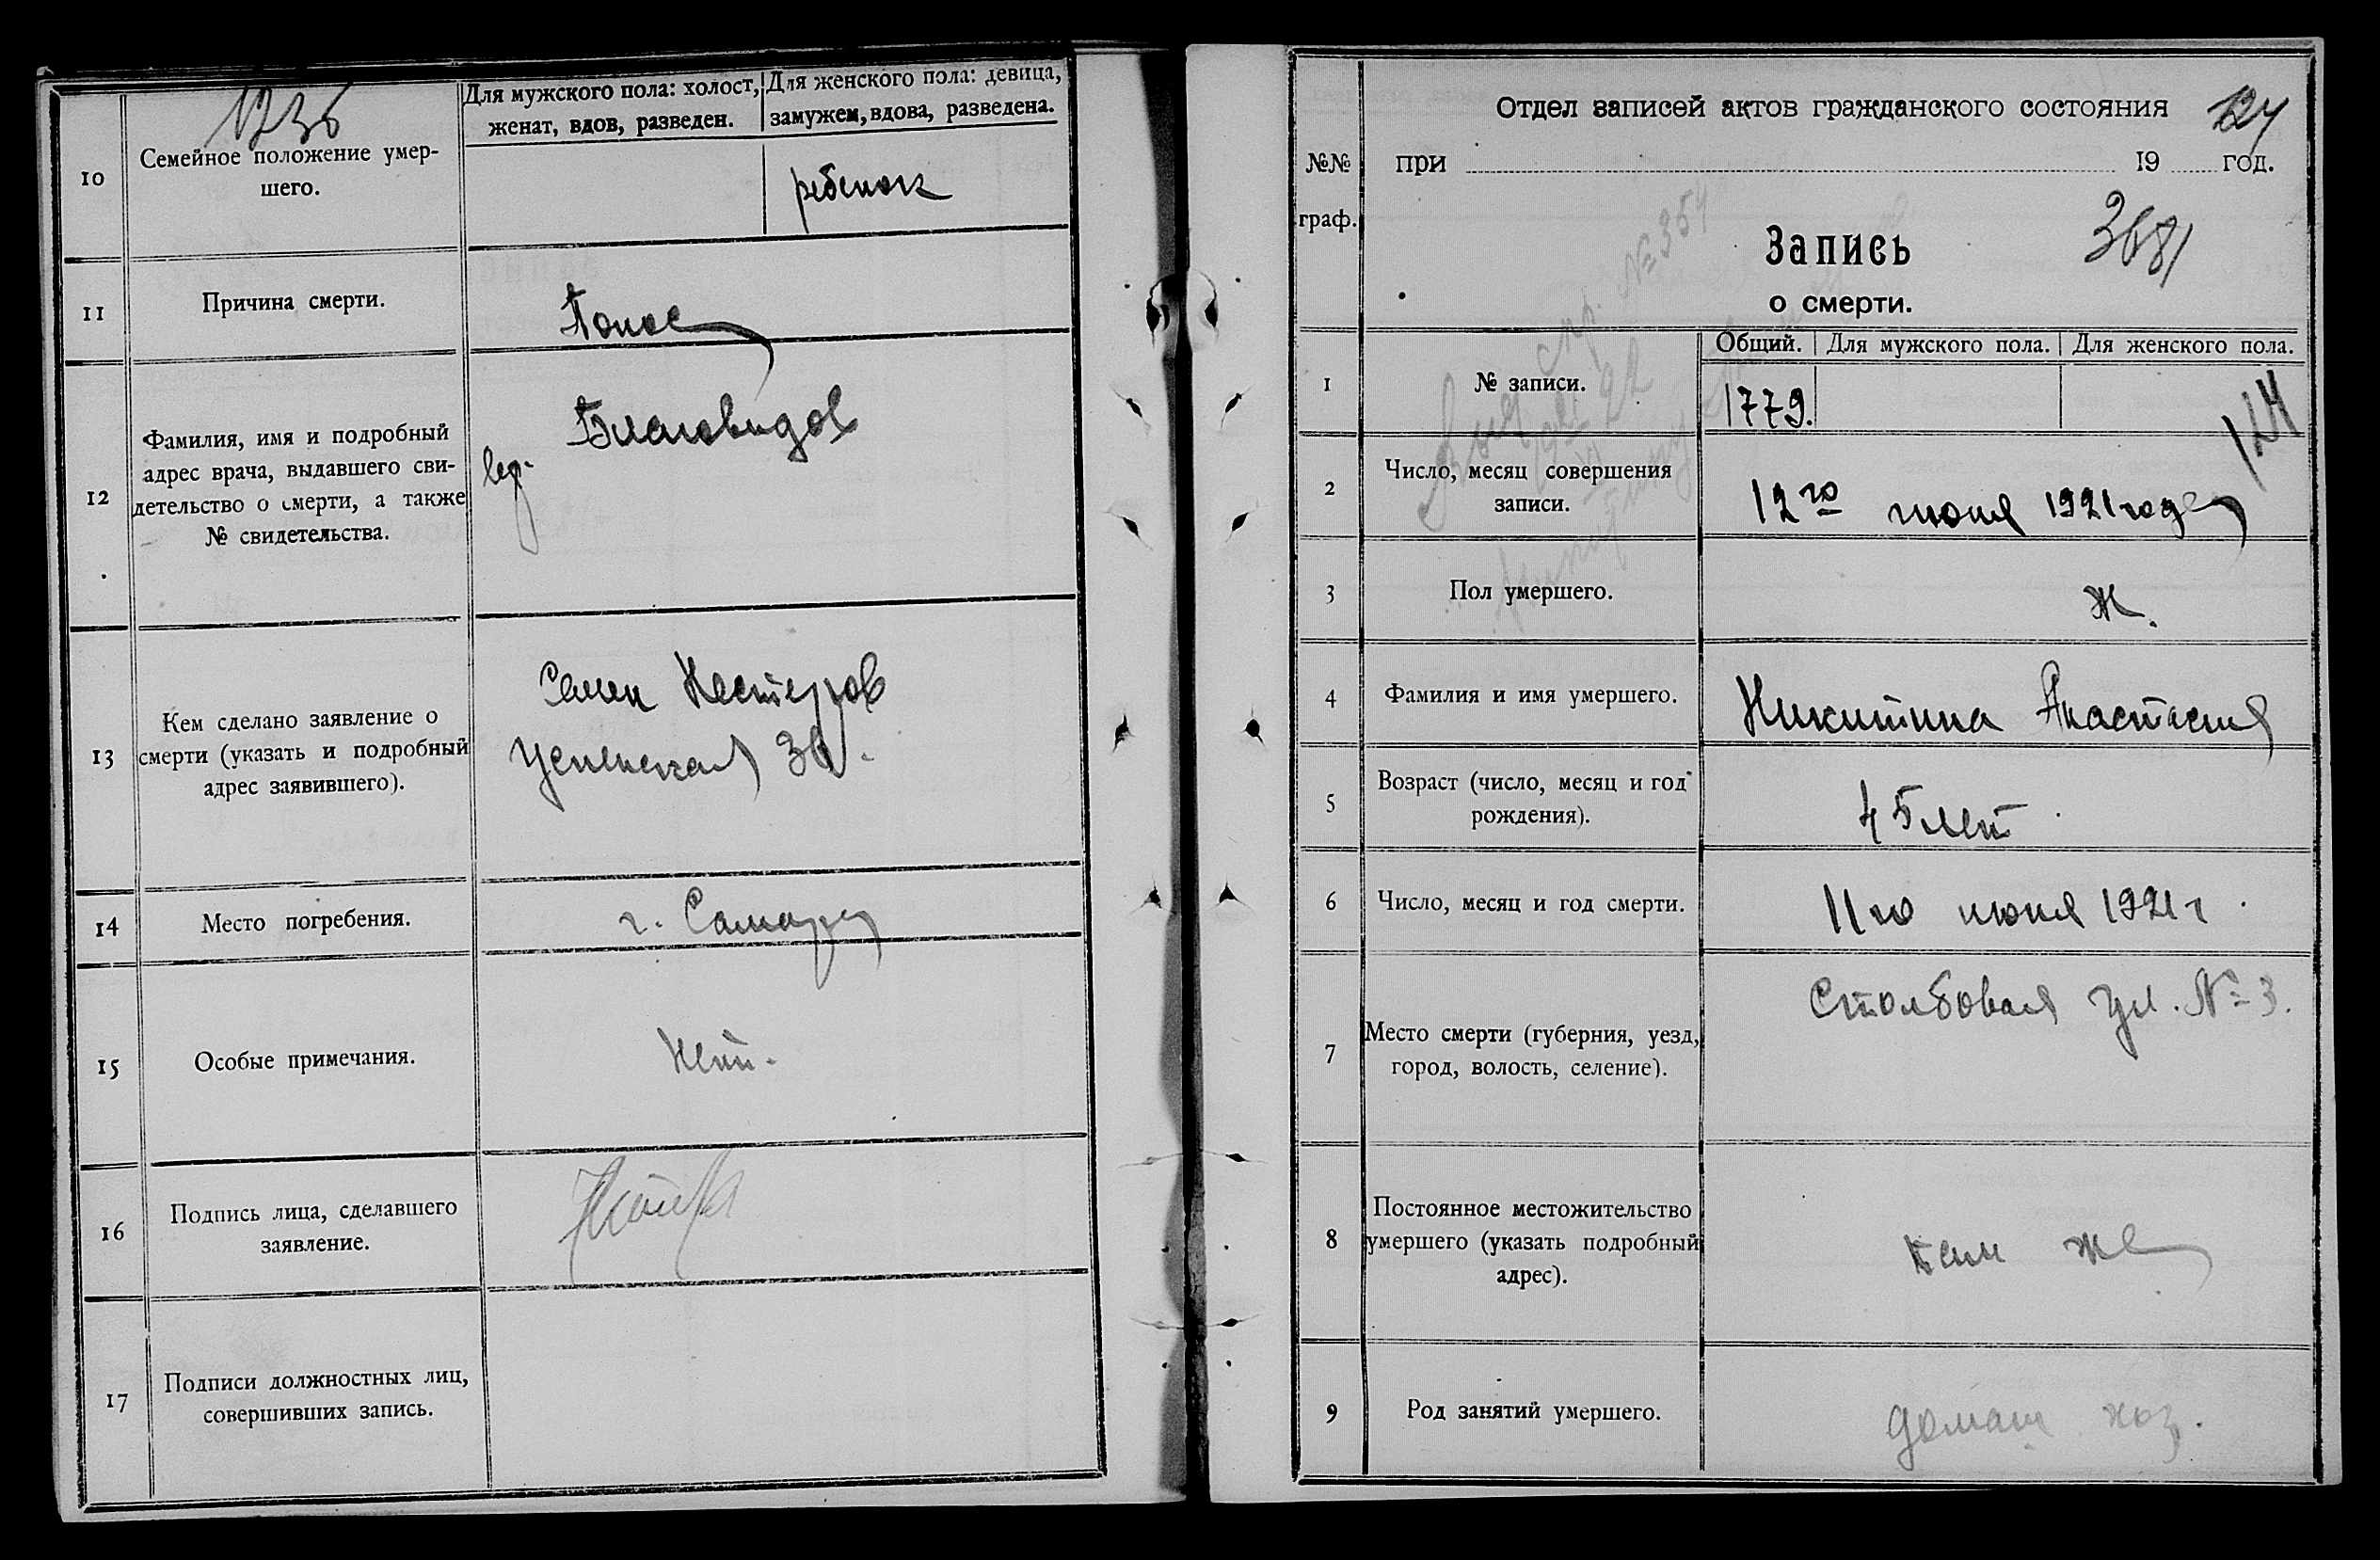 1236
10
Семейное положение умер-
шего.
Для мужского пола: холост,
женат, вдов, разведен.
Для женского пола: девица,
замужем, вдова, разведена.
ребенок
11
Причина смерти.
Понос
12
Фамилия, имя и подробный
адрес врача, выдавшего сви-
детельство о смерти, а также
№ свидетельства.
Благовидов
13
Кем сделано заявление о
смерти (указать и подробный
адрес заявившего).
Семен Нестеров
Успенская 30.
14
Место погребения.
г. Самара
15
Особые примечания.
Нет.
16
Подпись лица, сделавшего
заявление.
17
Подписи должностных лиц,
совершивших запись.
№№
граф.
Отдел записей актов гражданского состояния
124
при 19 год.
№ 354
Запись
3681
о смерти.
Общий. Для мужского пола. Для женского пола.
1
№ записи.
1779.
124
2
Число, месяц совершения
записи.
12го июня 1921 года
3
Пол умершего.
ж.
4
Фамилия и имя умершего.
Никитина Анастасия
5
Возраст (число, месяц и год
рождения).
45 лет
6
Число, месяц и год смерти.
11го июня 1921 г.
7
Место смерти (губерния, уезд,
город, волость, селение).
Столбовая ул. № 3.
8
Постоянное местожительство
умершего (указать подробный
адрес).
там же
9
Род занятий умершего.
домаш хоз.